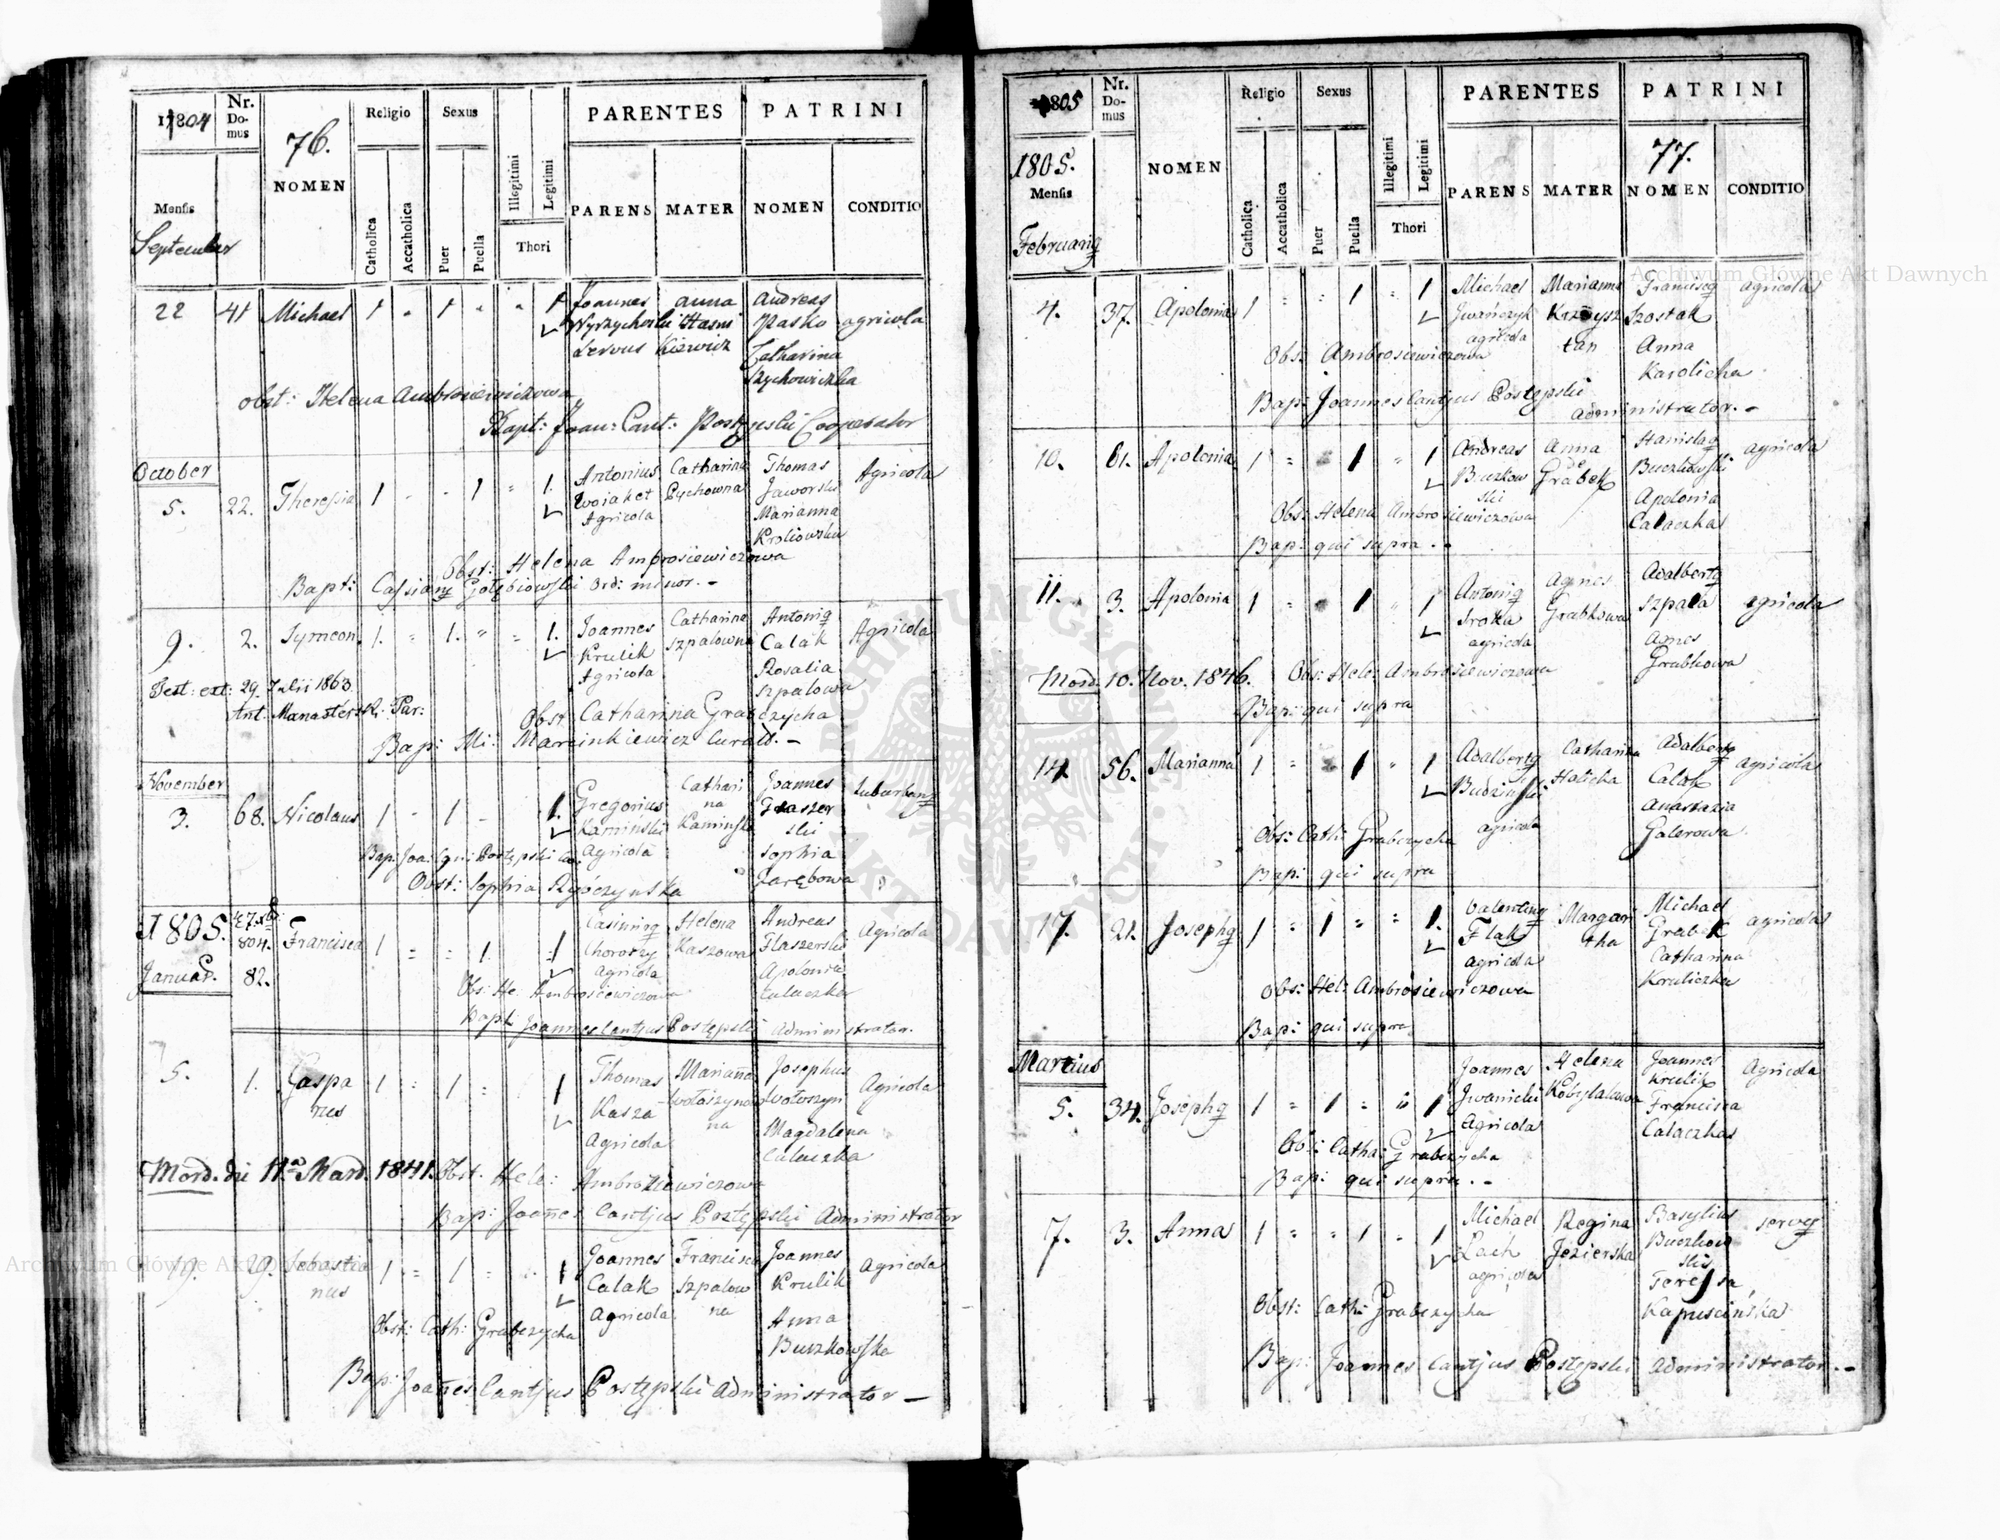 1804
Nr. Domus
76.
NOMEN
Religio
Sexus
Illegitimi
Legitimi
Thori
PARENTES
PATRINI
Mensis
Catholica
Accatholica
Puer
Puella
PARENS MATER NOMEN CONDITIO
September
22 41 Michael 1 " 1 " " 1
Joannes
Servus
Anna
Kiewicz
Andreas
Pasko
Catharina
agricola
obst: Helena Ambrosiewiczowa
Bapt: Joan: Cant: Postępski Cooperator
October
5. 22. Theresia 1 - - 1 " 1.
Antonius
Wojaket
Agricola
Catharina
Pychowna
Thomas
Jaworski
Marianna
Agricola
Obst: Helena Ambrosiewiczowa
Bapt: Cassiang Gołębiowski Ord: minor. -
9. 2. Symeon 1. " 1. " " 1.
Joannes
Krulik
Agricola
Catharina
Szpalowna
Antonig
Calak
Rosalia
Szpalowa
Agricola
Test: ext: 29. Julii 1863.
Ant. Manasterski Par:
Obst Catharina Grabczycha
Bap: Mi: Marcinkiewicz Curat. -
November
3. 68. Nicolaus 1 - 1 - 1.
Gregorius
Kaminski
Agricola
Cathari
na
Kaminska
Joannes
Sophia
Zarębowa
Suburbang
Bap: Joa: Postępski
Obst: Sophia
1805.
Januar.
804.
82.
Francisca 1 = = 1. 1
Casimirg
Chorozy
Agricola
Helena
Kaszowa
Andreas
Flaszerski
Apolonia
Calaczka
Agricola
Obs: He: Ambrosiewiczowa
Bapt: Joannes Cantjus Postępski Administrator.
5. 1. Gaspa
rus
1 = 1 = 1
Thomas
Kasza
Agricola
Marianna
Wołoszyno
na
Josephus
Wołoszyn
Magdalena
Calaczka
Agricola
Mord. die 11a Mard. 1841. Obst. Hele: Ambroziewiczowa
Bap: Joanes Cantjus Postępski Administrator
19. 29. Sebastia
nus
1 = 1 = 1
Joannes
Calak
Agricola
Francisca
Szpalow
na
Joannes
Krulik
Anna
Buczkowska
Agricola
Obst: Cath: Grabczycha
Bap: Joanes Cantjus Postępski Administrator —
1805
Nr. Domus
NOMEN
Religio
Sexus
Illegitimi
Legitimi
Thori
PARENTES
PATRINI
77.
1805.
Mensis
Catholica
Accatholica
Puer
Puella
PARENS MATER NOMEN CONDITIO
Februarig
Archiwum Główne Akt Dawnych
4. 37. Apolonia 1 = = 1 " 1
Michael
Jwańczyk
agricola
Marianna
Franciscg
Szostak
Anna
Karolicha
agricola
Obs: Ambrosiewiczowa
Bap: Joannes Cantjus Postępski
Administrator. -
10. 61. Apolonia 1 = 1 " 1
Andreas
Buczkow
ski
Anna
de
Grabek
Stanislag
Buczkowski
Apolonia
Calaczka
agricola
Obs: Helena Ambrosiewiczowa
Bap: qui supra. -
11. 3. Apolonia 1 = 1 " 1
Antonig
Sroka
agricola
Agnes
Grabkowa
Adalbertg
Szpala
Agnes
Grabkowa
agricola
Mord. 10. Nov. 1846. Obs: Hele: Ambrosiewiczowa
Bap: qui supra
14. 56. Marianna 1 = 1 " 1
Adalbertg
Budzinski
agricola
Catharina
Halicha
Adalbertg
Calak
Anastazia
Galerowa
agricola
Obs: Cath: Grabczycha
Bap: qui supra
17. 21. Josephg 1 = 1 = = 1.
Valenting
Flak
agricola
Margari
tha
Michael
Grabek
Catharina
Kruliczka
agricola
Obs: Hel: Ambrosiewiczowa
Bap: qui supra
Martius
5. 34. Josephg 1 = 1 = 1
Joannes
Jwanicki
Agricola
Helena
Kobylakowa
Joannes
Krulik
Francisca
Calaczka
Agricola
Obs: Catha: Grabczycha
Bap: qui supra. -
7. 3. Anna 1 " " 1 " 1
Michael
Lach
agricola
Regina
Jezierska
Basylius
Buczkow
ski
Teressa
Kapuscińska
servg
Obst: Cath: Grabczycha
Bap: Joannes Cantjus Postępski Administrator. -
Archiwum Główne Akt Dawnych
ARCHIWUM GŁÓWNE AKT DAWNYCH